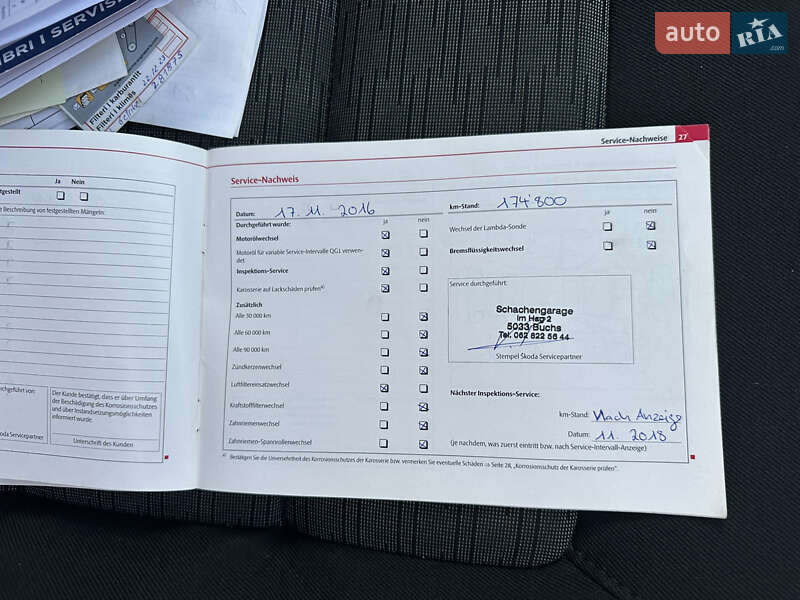 auto RIA.com
BRI I SERVISI
22.12.23
281875
Filteri i karburantit
Filteri i klimës
Service-Nachweise 27
Ja Nein
Beschreibung von festgestellten Mängeln:
Der Kunde bestätigt, dass er über Umfang
der Beschädigung des Korrosionsschutzes
und über Instandsetzungsmöglichkeiten
informiert wurde.
Unterschrift des Kunden
Servicepartner
Service-Nachweis
Datum: 17. 11. 2016
km-Stand: 174'800
Durchgeführt wurde: ja nein
ja nein
Motorölwechsel
Wechsel der Lambda-Sonde
Motoröl für variable Service-Intervalle QG1 verwen-
det
Bremsflüssigkeitswechsel
Inspektions-Service
Karosserie auf Lackschäden prüfen a)
Service durchgeführt:
Zusätzlich
Alle 30 000 km
Alle 60 000 km
Alle 90 000 km
Schachengarage
Im Hag 2
5033 Buchs
Tel. 062 822 56 44
Stempel Škoda Servicepartner
Zündkerzenwechsel
Luftfiltereinsatzwechsel
Kraftstofffilterwechsel
Zahnriemenwechsel
Zahnriemen-Spannrollenwechsel
Nächster Inspektions-Service:
km-Stand: Nach Anzeige
Datum: 11. 2018
(je nachdem, was zuerst eintritt bzw. nach Service-Intervall-Anzeige)
a) Bestätigen Sie die Unversehrtheit des Korrosionsschutzes der Karosserie bzw. vermerken Sie eventuelle Schäden ⇒ Seite 28, „Korrosionsschutz der Karosserie prüfen“.